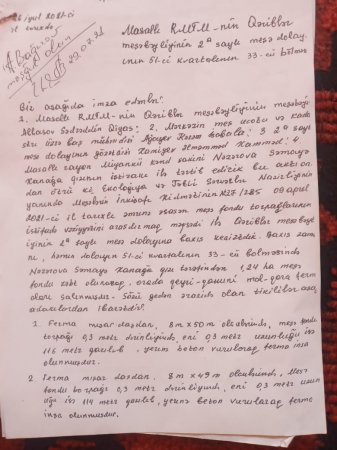 26 iyul 2021-ci
il tarixdə
29.07.21
Masallı RMTM-nin Qəriblər
meşəbəyliyinin 2ª saylı meşə dolay.
ının 51-ci kvartalının 33-cü bölməs
Biz aşağıda imza edənlər:
1. Masallı RMTM-nin Qəriblər meşəbəyliyinin meşəbəyi
Abbasov Sədrəddin Qigas; 2. Mərkəzin meşə ucotu və kada
stri üzrə baş mühəndisi Ağayev Həsən Baballa; 3 2ª sayl
meşə dolayının gözətçisi Həmid
Masallı rayon Miyankü kənd sakini Nəzərova Səmayə
Xanağa qızının iştirakı ilə tərtib edirik bu aktı on
dan ötrü ki, Ekologiya və Təbii Sərvətlər Nazirliyinin
yanında Meşələrin İnkişafı Xidmətinin 285 09 aprel
2021-ci il tarixli əmrinə əsasən meşə fondu torpaqlarının
istifadə vəziyyətini araşdırmaq məqsədi ilə Qəriblər meşəbəyl
iyinin 2ª saylı meşə dolayına baxış keçirdik. Baxış zam
anı, həmin dolayın 51-ci kvartalının 33-cü bölməsində
Nəzərova Səmayə Xanağa qızı tərəfindən 1,24 ha meşə
fondu zəbt olunaraq, orada qeyri-qanuni mal-qara ferm
aları salınmışdır. Sözü gedən ərazidə olan tikililər aşağ
ıdakılardan ibarətdir:
1. Ferma mişar daşdan, 8m x 50m ölçüsündə, meşə fondu
torpağı 0,3 metr dərinliyində, eni 0,3 metr uzunluğu isə
116 metr qazılıb, yerinə beton vurularaq ferma inşa
olunmuşdur.
2 Ferma mişar daşdan, 8m x 49m ölçüsündə, Meşə
fondu torpağı 0,3 metr dərinliyində, eni 0,3 metr uzun
luğu isə 114 metr qazılıb, yerinə beton vurularaq ferma
inşa olunmuşdur.